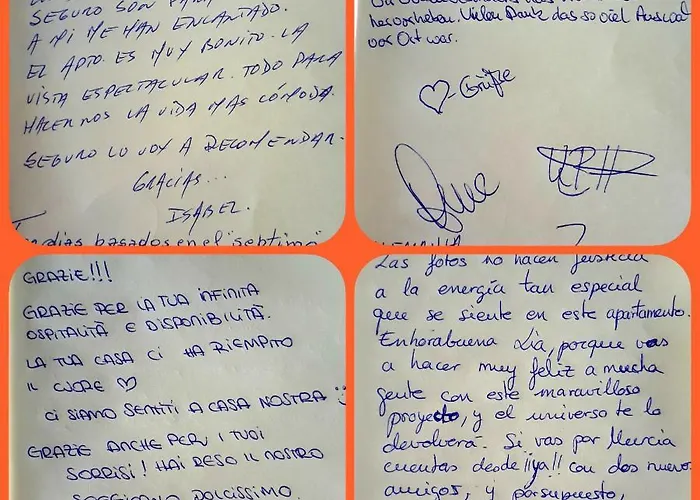 SEGURO SON PARA
A MI ME HAN ENCANTADO.
EL APTO. ES MUY BONITO. LA
VISTA ESPECTACULAR. TODO PARA
HACERNOS LA VIDA MAS CÓMODA.
SEGURO LO VOY A RECOMENDAR.
GRACIAS...
ISABEL.
dias basados en el "septimo"
hervorheben. Vielen Dank das so viel Auswahl
vor Ort war.
♡-Grüße
GRAZIE!!!
GRAZIE PER LA TUA INFINITA
OSPITALITÀ E DISPONIBILITÀ.
LA TUA CASA CI HA RIEMPITO
IL CUORE ♡
CI SIAMO SENTITI A CASA NOSTRA :)
GRAZIE ANCHE PER I TUOI
SORRISI! HAI RESO IL NOSTRO
SOGGIORNO DOLCISSIMO.
Las fotos no hacen justicia
a la energía tan especial
que se siente en este apartamento.
Enhorabuena Lía, porque vas
a hacer muy feliz a mucha
gente con este maravilloso
proyecto, y el universo te lo
devolverá. Si vas por Murcia
cuentas desde ¡¡ya!! con dos nuevos
amigos, y por supuesto